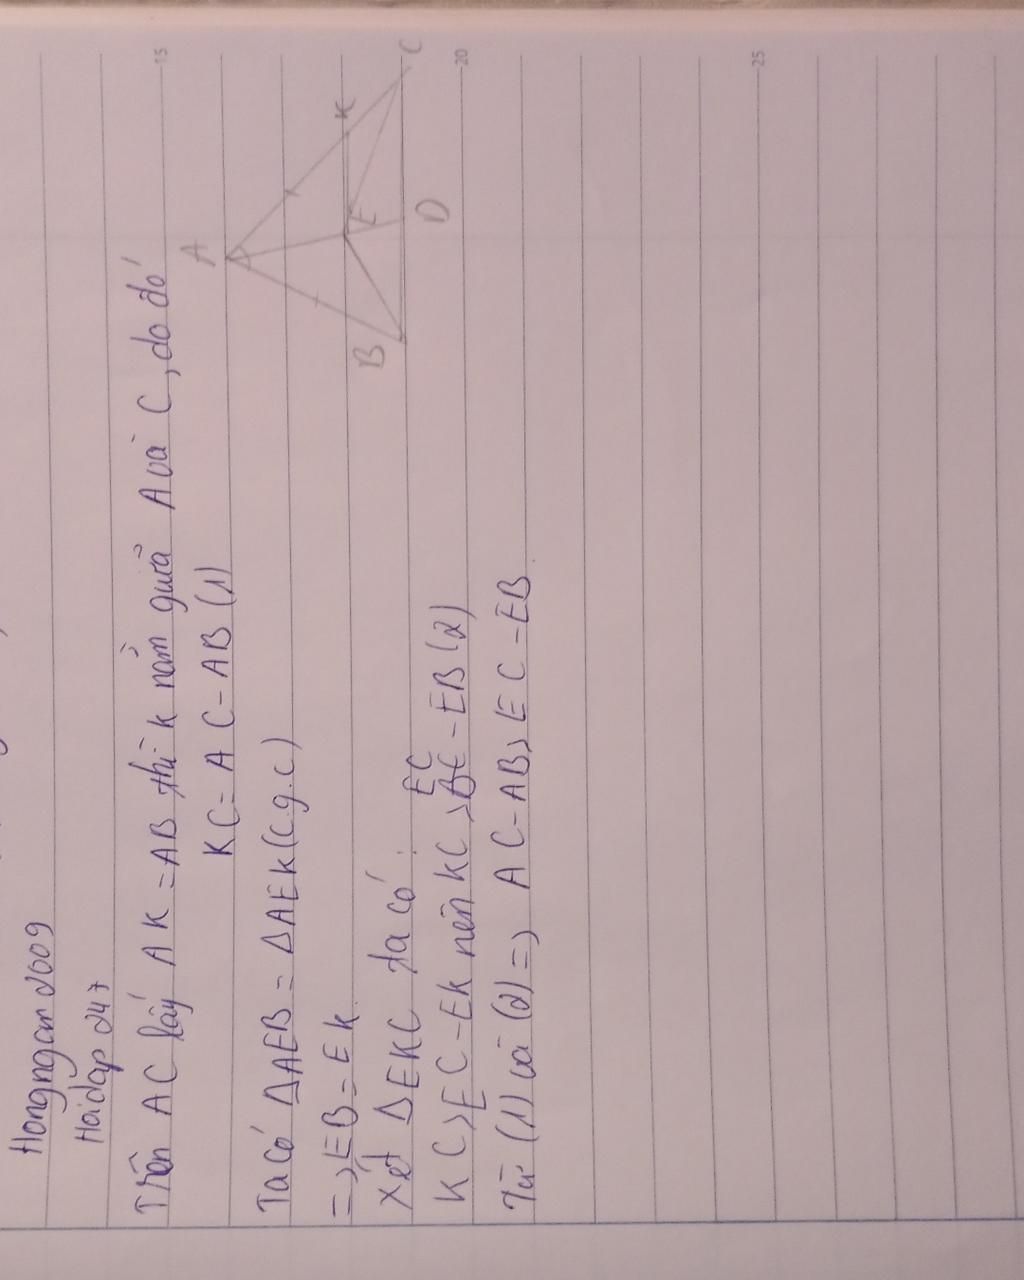 Hongngan2009
Hoidap247
Trên AC lấy AK = AB thì K nằm giữa A và C, do đó
KC = AC - AB (1)
Ta có ΔAEB = ΔAEK (c.g.c)
=> EB = EK
Xét ΔEKC ta có:
KC > EC - EK nên KC > EC - EB (2)
Từ (1) và (2) => AC - AB > EC - EB
A
B
C
D
E
K
15
20
25